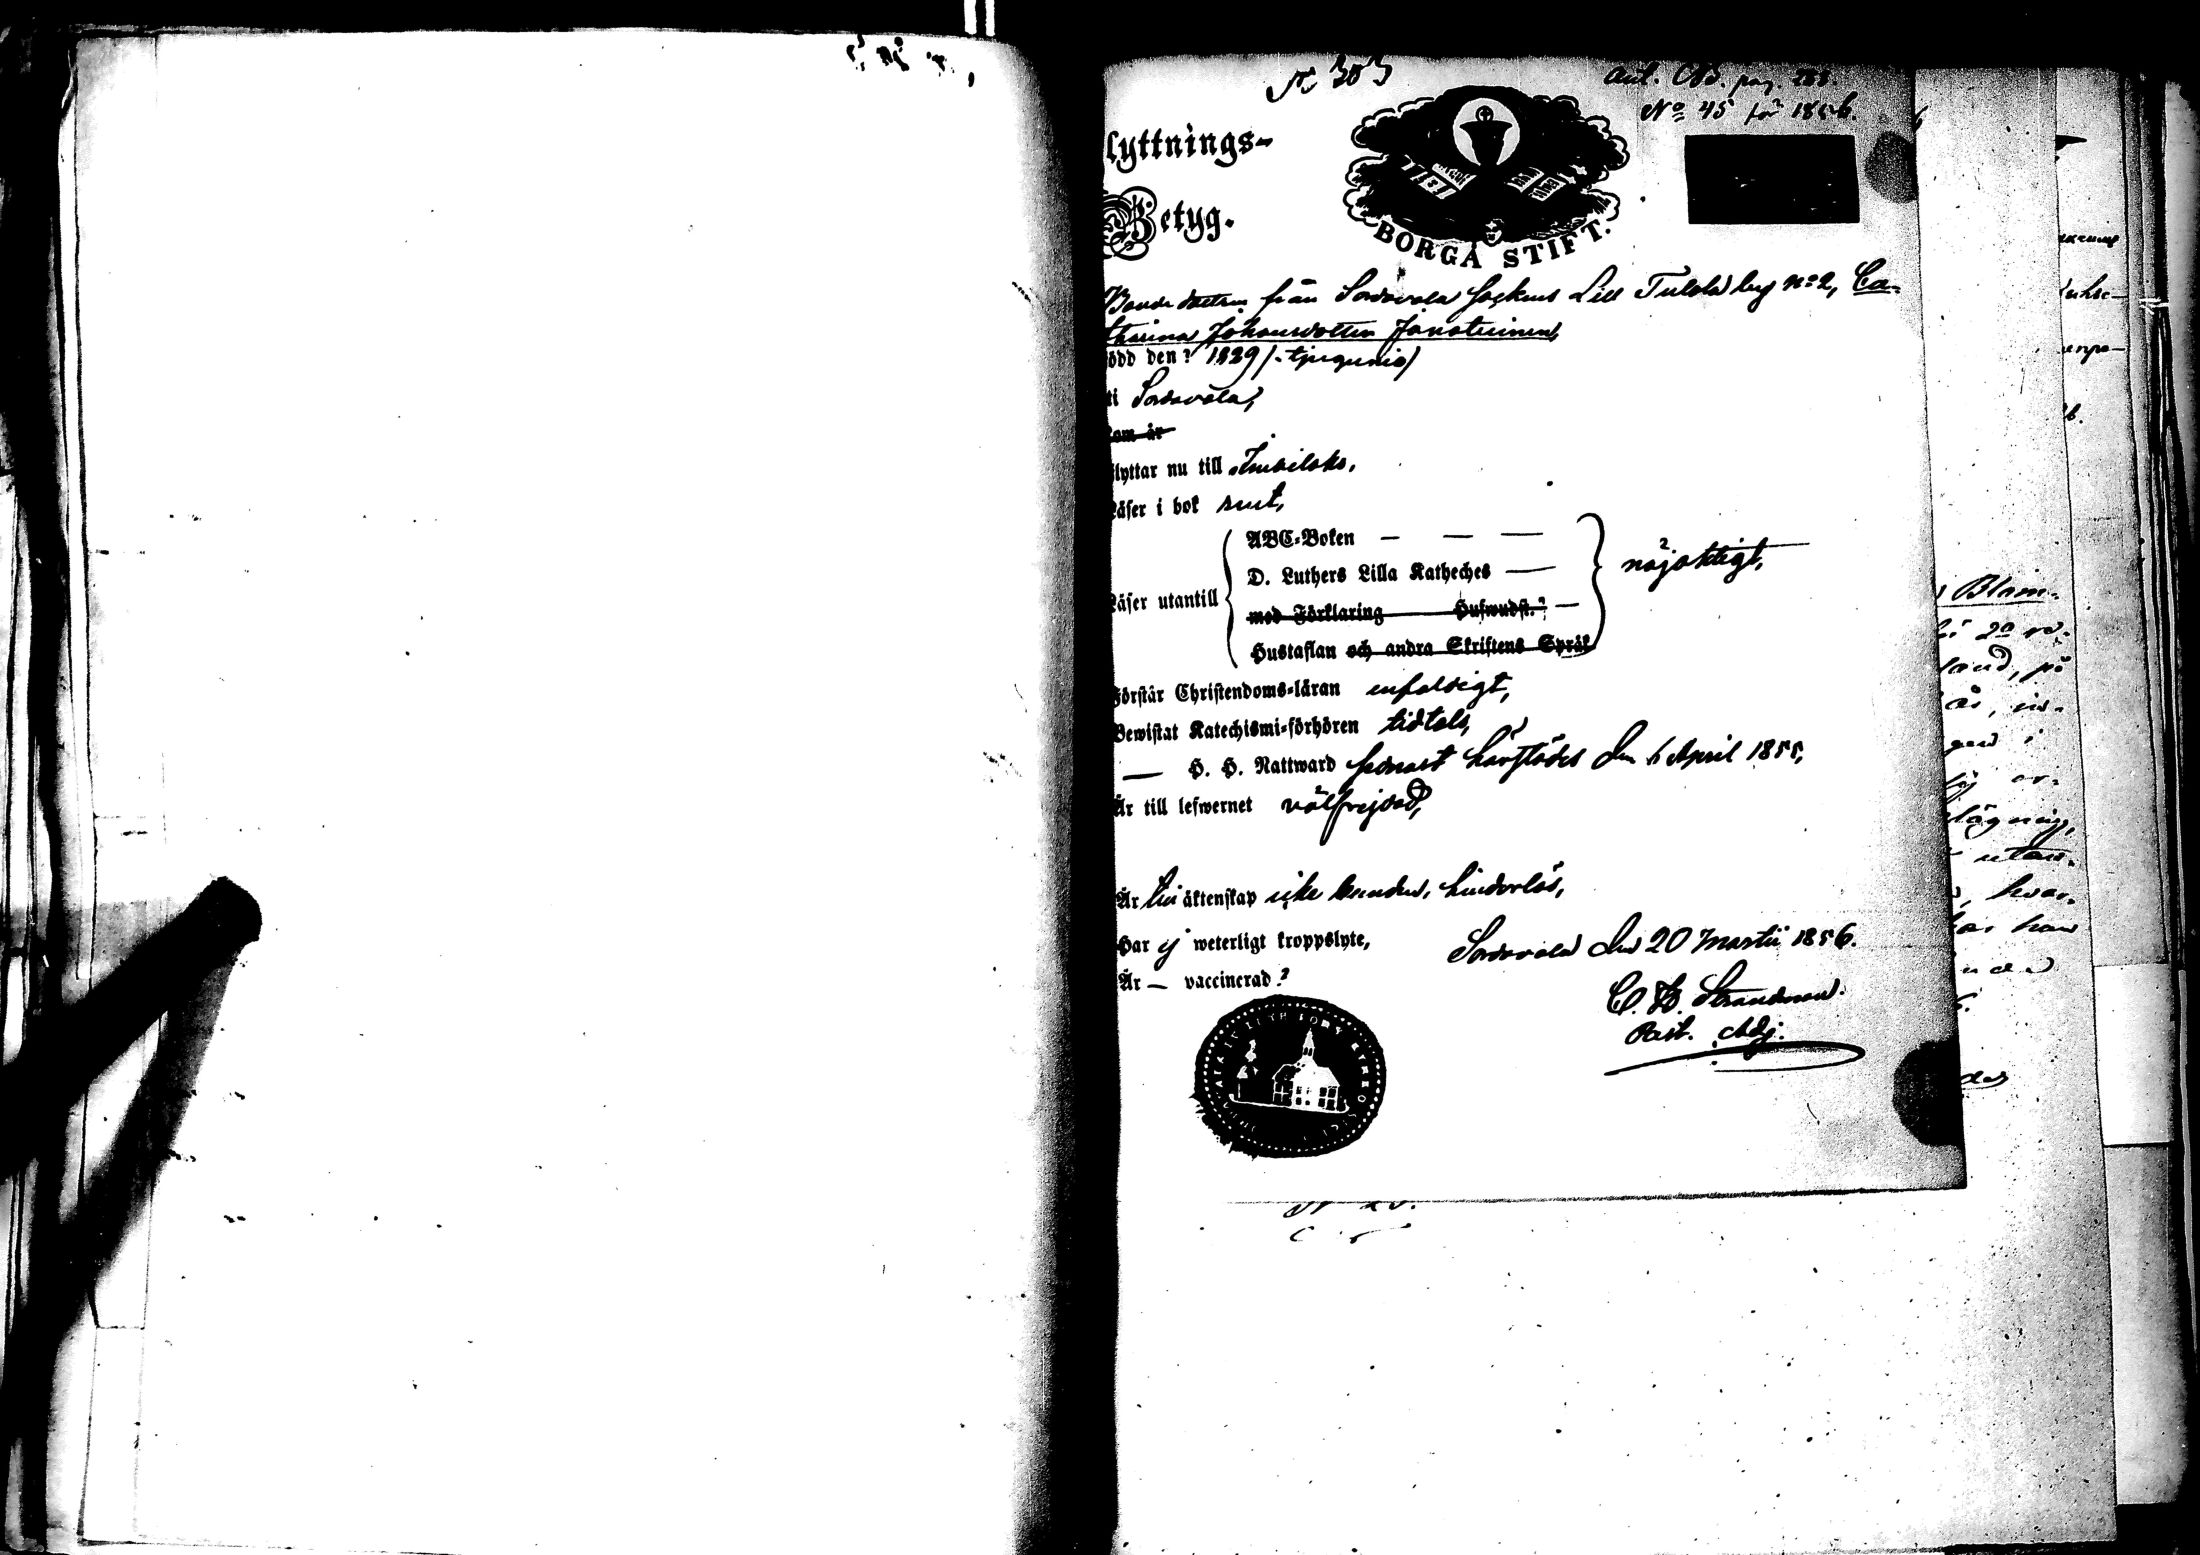 No 303
Anl. Cbd. pag. 253.
No 45 för 1856.
lyttnings-
Betyg.
BORGÅ STIFT.
Bonde dottren från Sordavala Sockens Lill Tulola by No 2, Ca-
tharina Johansdotter Javotuinen,
född den? 1829 /-tjugunio/
i Sordavala,
som är
flyttar nu till Imbilaks.
Läser i bok rent,
ABC-Boken — — —
D. Luthers Lilla Katheches —
Läser utantill
med Förklaring Hufwudst.? —
Hustaflan och andra Skriftens Språk
nöjaktigt,
Förstår Christendoms-läran enfaldigt,
Bewistat Katechismi-förhören tidtals,
— H. H. Nattward senast härstädes den 6 April 1855,
Är till lefwernet välfrejdad,
Är till äktenskap icke bunden, hinderlös,
Har ej weterligt kroppslyte,
Sordavala den 20 Martii 1856.
Är — vaccinerad?
C. F. Strandman.
Past. Adj.
Blom-
land, på
hvar-